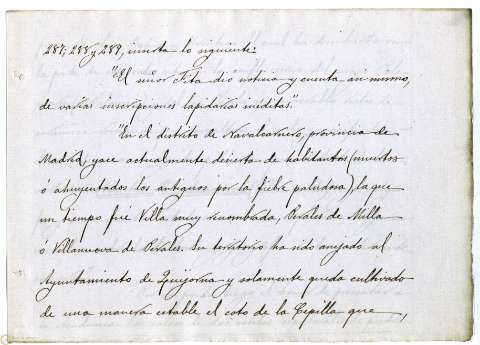 287, 288 y 289, inserta lo siguiente:
"El señor Fita dió noticia y cuenta asi mismo,
de varias inscripciones lapidarias inéditas".
"En el distrito de Navalcarnero, provincia de
Madrid, yace actualmente desierta de habitantes (muertos
ó ahuyentados los antiguos por la fiebre paludosa), la que
un tiempo fué Villa muy renombrada, Perales de Milla
ó Villanueva de Perales. Su territorio ha sido anejado al
Ayuntamiento de Quijorna y solamente queda cultivado
de una manera estable el coto de la Cepilla que,